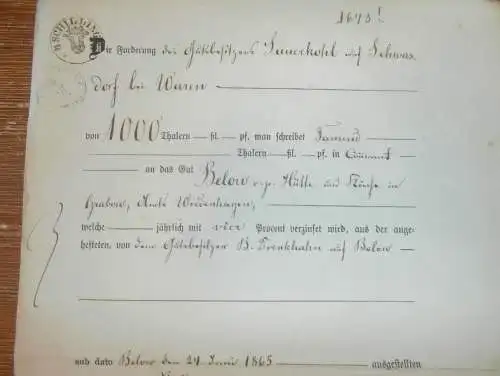 1643!
SCHILLING
Die Forderung des Gutsbesitzers Sauerkohl auf Schwas
dorf bei Waren
von 1000 Thalern — ßl. — pf. man schreibet Tausend
Thalern — ßl. — pf. in Courant
an das Gut Below resp. Hütte und in
Grabow, Amts Wredenhagen,
welche jährlich mit vier Procent verzinset wird, aus der ange-
hefteten, von dem Gutsbesitzer B. Trenkhahn auf Below
sub dato Below den 24 Juni 1865 ausgestellten